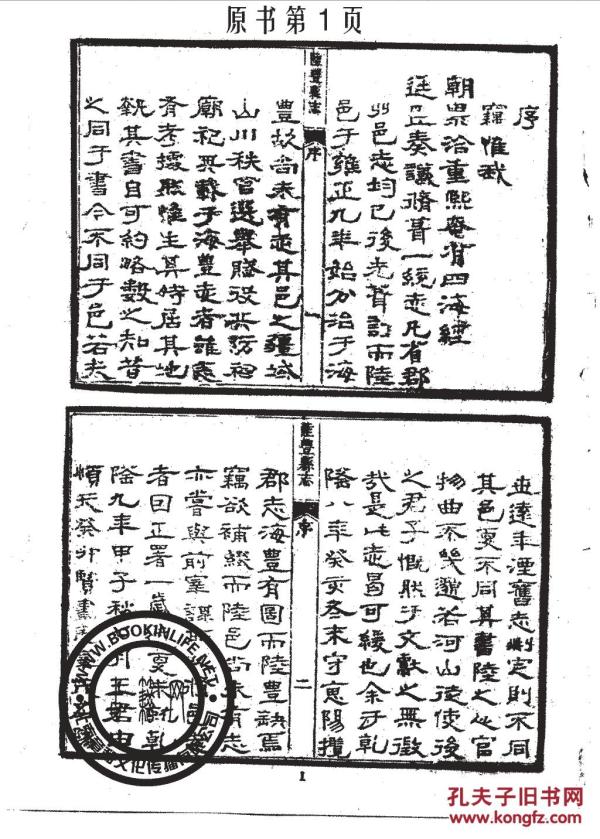 原书第1页
序
竊惟我
朝累洽重熙奄有四海經
廷臣奏議脩葺一統志凡省郡
州邑志均已後先督訂而陸
邑于雍正九年始分治于海
陸豐縣志
序
一
豐故尚未有志其邑之疆域
山川秩官選舉賦役兵防祠
廟祀典載于海豐志者誰爲
脊考據然惟生其時居其地
執其書自可約略數之知昔
之同于書今不同于邑若夫
世遠年湮舊志刪定則不同
其邑更不同其書陸之從官
物曲不幾邈若河山徒使後
之君子慨然于文獻之無徵
哉是此志曷可緩也余于乾
隆八年癸亥冬來守惠陽攬
陸豐縣志
序
二
郡志海豐有圖而陸豐缺焉
竊欲補綴而陸邑尚未有志
亦嘗與前宰謀
者因正署一歲
隆九年甲子秋 月王君由
順天癸卯賢書
1
WWW.BOOKINLIFE.NET
孔夫子旧书网
www.kongfz.com